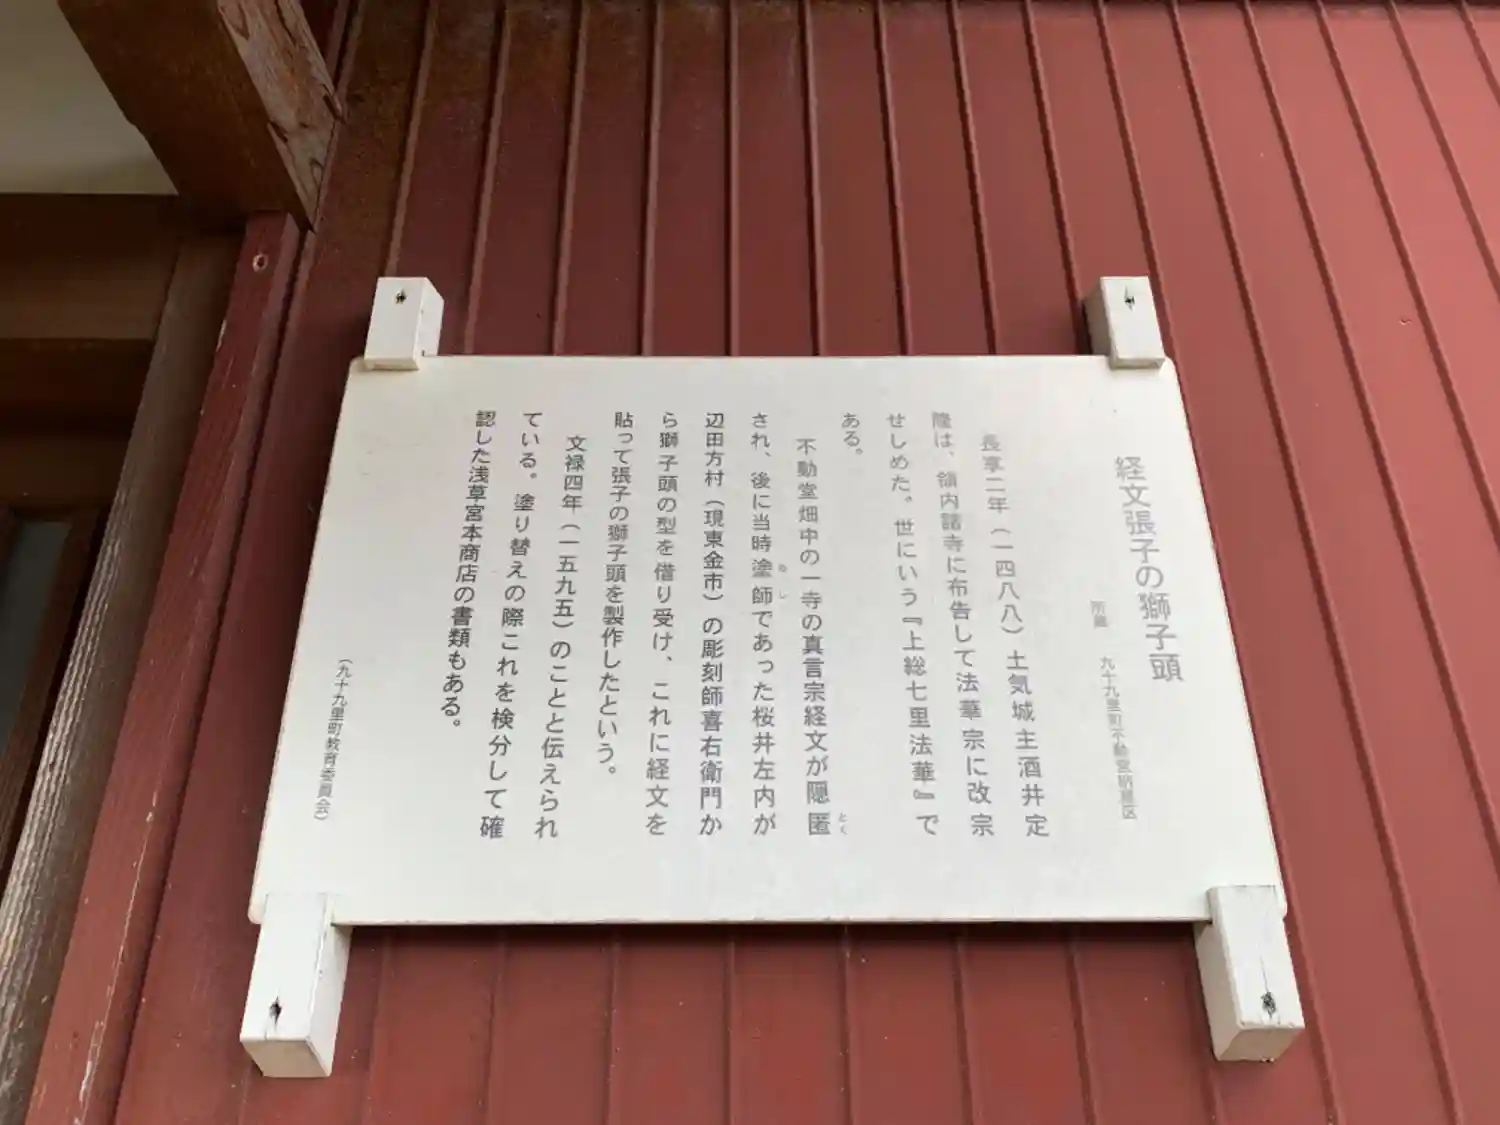 経文張子の獅子頭
所蔵　九十九里町不動堂納屋区
長享二年（一四八八）土気城主酒井定
隆は、領内諸寺に布告して法華宗に改宗
せしめた。世にいう『上総七里法華』で
ある。
不動堂畑中の一寺の真言宗経文が隠匿とく
され、後に当時塗師ぬしであった桜井左内が
辺田方村（現東金市）の彫刻師喜右衛門か
ら獅子頭の型を借り受け、これに経文を
貼って張子の獅子頭を製作したという。
文禄四年（一五九五）のことと伝えられ
ている。塗り替えの際これを検分して確
認した浅草宮本商店の書類もある。
（九十九里町教育委員会）